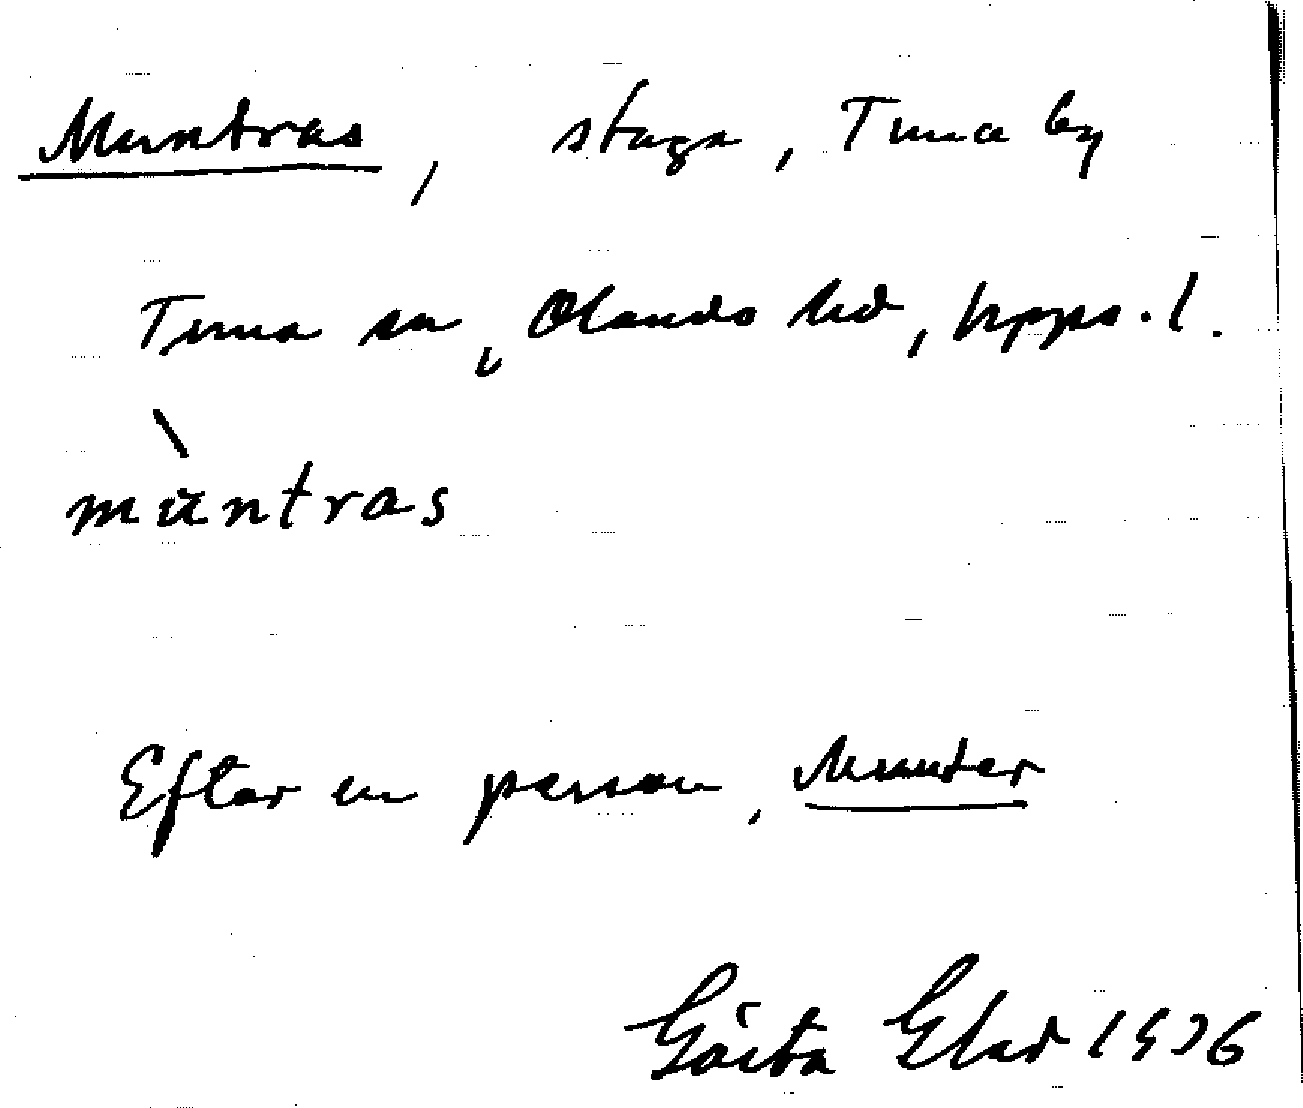 Muntras, stuga, Tuna by
Tuna sn, Olands hd, Upps. l.
muntras
Efter en person, Munter
Gösta Elar 1936